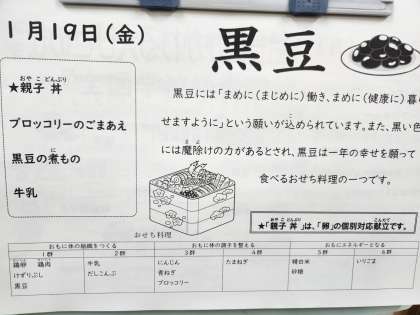 1月19日(金)
黒豆
★親子丼
おやこどんぶり
ブロッコリーのごまあえ
黒豆の煮もの
牛乳
黒豆には「まめに(まじめに)働き、まめに(健康に)暮ら
せますように」という願いが込められています。また、黒い色
には魔除けの力があるとされ、黒豆は一年の幸せを願って
食べるおせち料理の一つです。
おせち料理
★「親子丼」は、「卵」の個別対応献立です。
おもに体の組織をつくる おもに体の調子を整える おもにエネルギーとなる
1群 2群 3群 4群 5群 6群
鶏卵 鶏肉 牛乳 にんじん たまねぎ 精白米 いりごま
けずりぶし だしこんぶ 青ねぎ 砂糖
黒豆 ブロッコリー